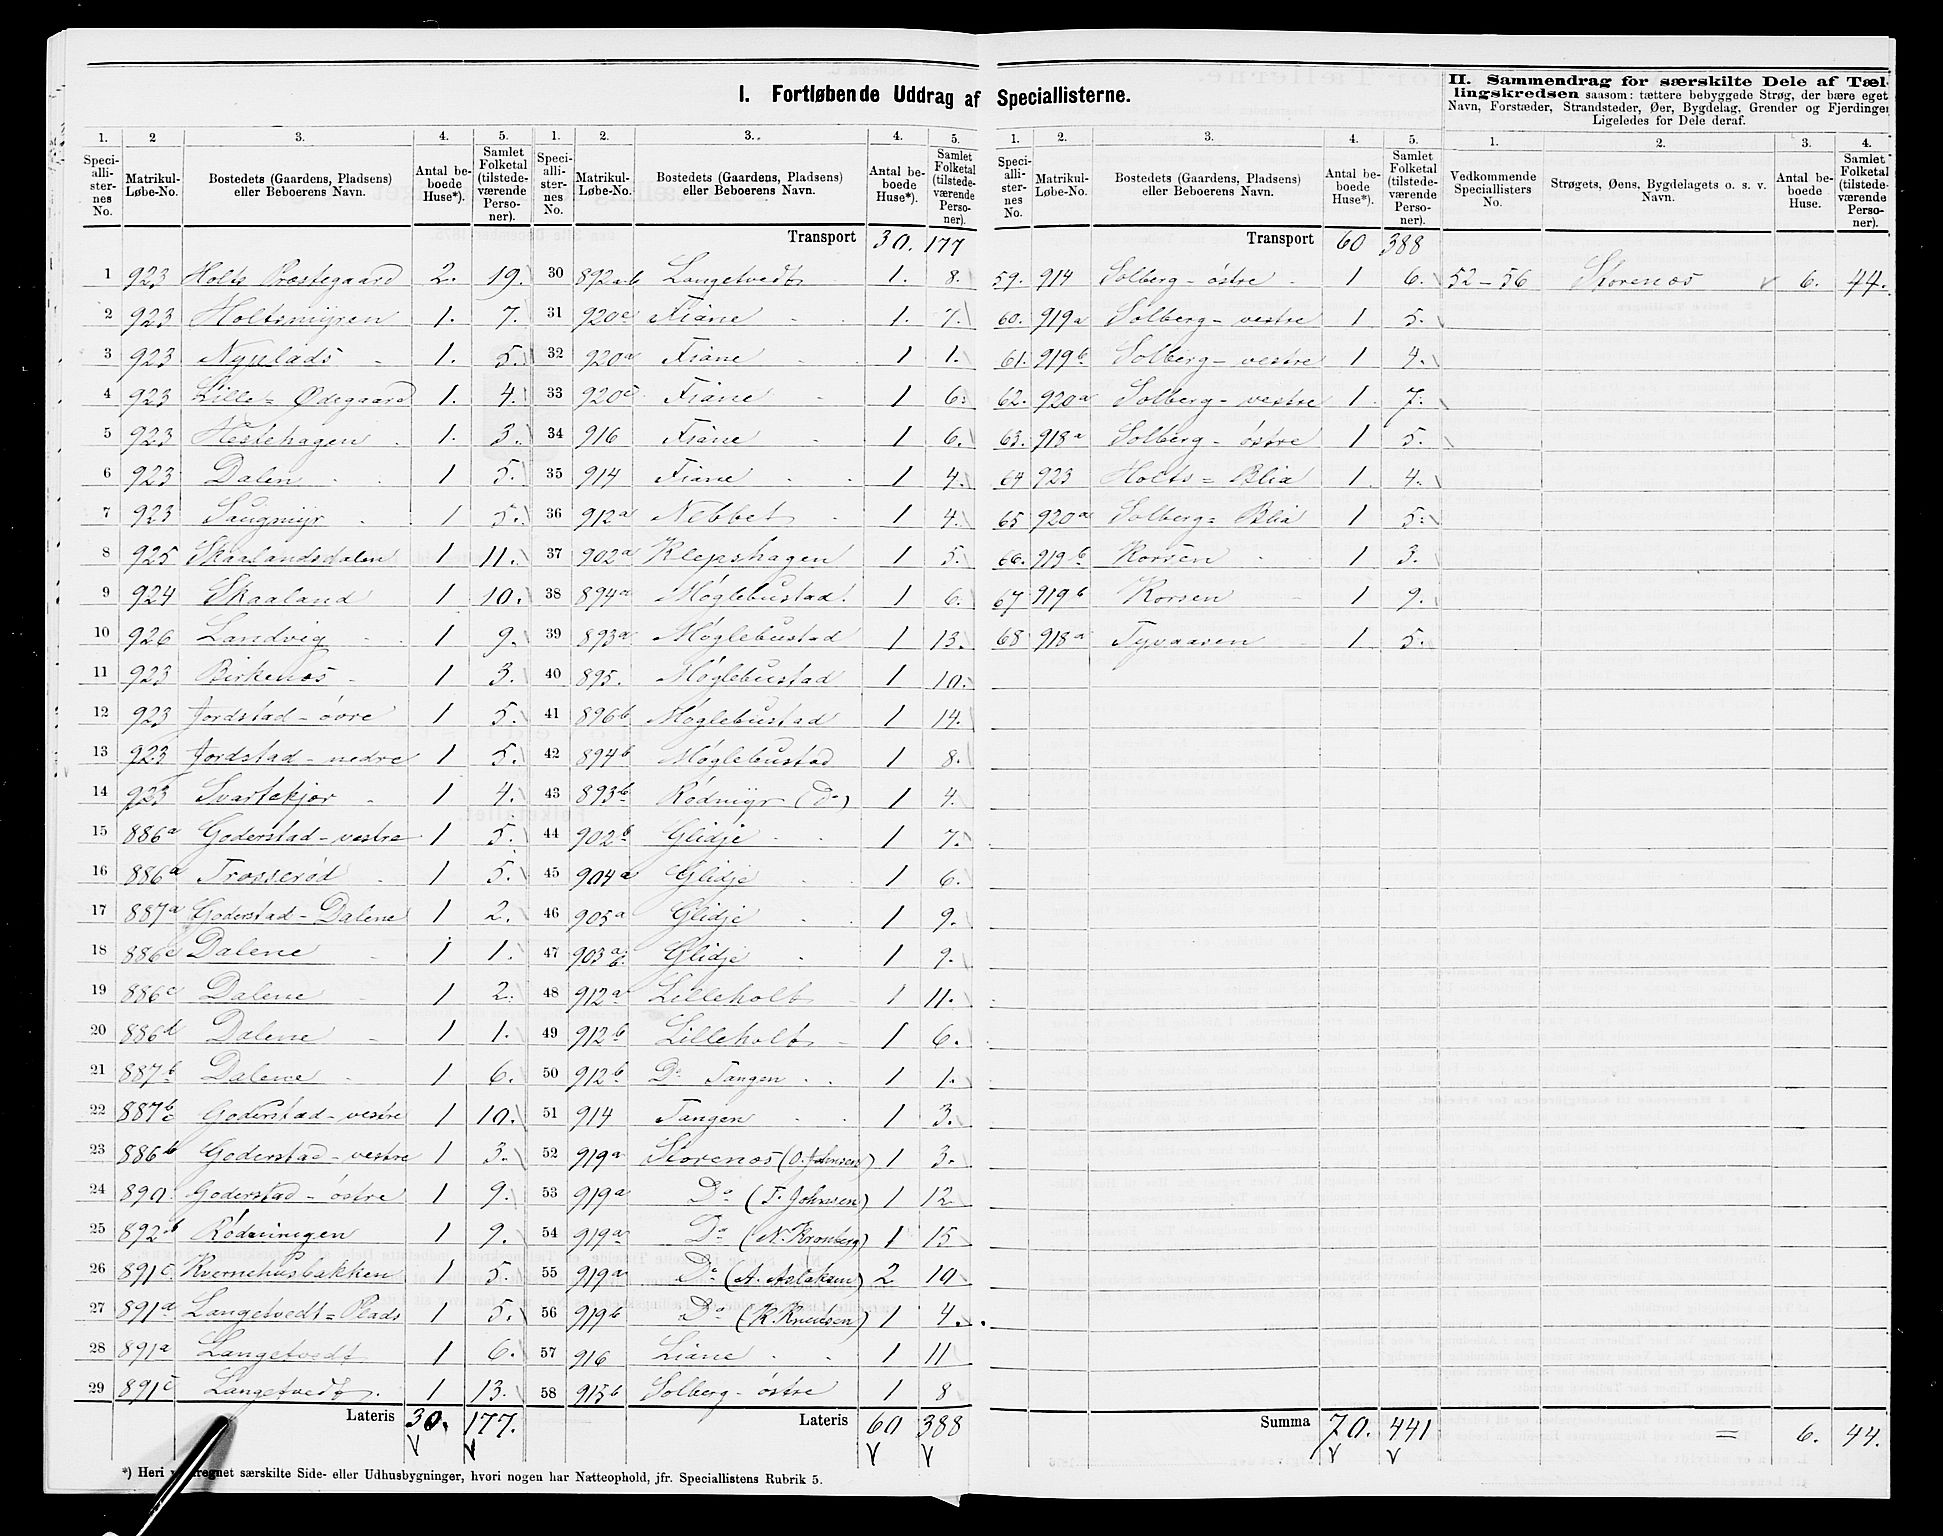 I. Fortløbende Uddrag af Speciallisterne.
II. Sammendrag for særskilte Dele af Tæl-
lingskredsen saasom: tættere bebyggede Strøg, der bære eget
Navn, Forstæder, Strandsteder, Øer, Bygdelag, Grender og Fjerdinger
Ligeledes for Dele deraf.
1. 2 3. 4. 5.
Speci-alli-ster-nes No. Matrikul-Løbe-No. Bostedets (Gaardens, Pladsens) eller Beboerens Navn. Antal be-boede Huse*). Samlet Folketal (tilstede-værende Perso-ner).
1 923 Holts Præstegaard 2. 19.
2 923 Holtsmyren 1. 7.
3 923 Nyplads 1. 5.
4 923 Lille=Ødegaard 1. 4.
5 923 Hestehagen 1. 3.
6 923 Dalen 1 5.
7 923 Saugmyr 1 5.
8 925 Skaalandsdalen 1 11.
9 924 Skaaland 1 10.
10 926 Landvig 1 9.
11 923 Birkenæs 1 3.
12 923 Jordstad-øvre 1 5.
13 923 Jordstad-nedre 1 5.
14 923 Svartekjør 1 4.
15 886a Goderstad-vestre 1 5.
16 886a Trosserød 1 5.
17 887a Goderstad-Dalene 1 2.
18 886c Dalene 1 1.
19 886c Dalene 1 2.
20 886d Dalene 1 1.
21 887b Dalene 1 6.
22 887bc Goderstad-vestre 1 10.
23 886b Goderstad-vestre 1 3.
24 890. Goderstad-østre 1 9.
25 892b Rødningen 1 9.
26 891c. Kvernehusbakken 1 5.
27 891a Langetvedt=Plads 1 5.
28 891a Langetvedt 1 6.
29 891c Langetvedt. 1 13.
Lateris 30. 177.
1. 2. 3. 4. 5.
Speci-alli-ster-nes No. Matrikul-Løbe-No. Bostedets (Gaardens, Pladsens) eller Beboerens Navn. Antal be-boede Huse*). Samlet Folketal (tilstede-værende Perso-ner).
Transport 30. 177
30 892a.b Langetvedt 1. 8.
31 920c Fiane 1. 7.
32 920a Fiane 1 1.
33 920c Fiane 1 6.
34 916 Fiane 1 6.
35 914 Fiane 1 4.
36 912a Nebbet 1 4.
37 902a Klepshagen 1 5.
38 894a Møglebustad 1 6.
39 893a Møglebustad 1 13.
40 895. Møglebustad 1 10.
41 896b Møglebustad 1 14.
42 894b Møglebustad 1 8.
43 893b Rødmyr (Do) 1 4.
44 902b Glidje 1 7.
45 904a Glidje 1 6.
46 905a Glidje 1 9.
47 903ab. Glidje 1 9.
48 912a Lilleholt 1 11.
49 912b Lilleholt 1 6.
50 912b Do Tangen 1 1.
51 914 Tangen 1 3.
52 919a Storenæs (O. Johnsen) 1 3.
53 919a Do (T. Johnsen) 1 12
54 919a Do (N. Kronberg) 1 15
55 919a Do (A. Aslaksen) 2 10
56 919b Do (K. Knudsen) 1 4.
57 916 Liane 1 11
58 913b Solberg-østre 1 8
Lateris 60 388
1. 2. 3. 4. 5.
Speci-alli-ster-nes No. Matrikul-Løbe-No. Bostedets (Gaardens, Pladsens) eller Beboerens Navn. Antal be-boede Huse*). Samlet Folketal (tilstede-værende Perso-ner).
Transport 60 388
59. 914 Solberg-østre 1 6.
60. 919a Solberg-vestre 1 5.
61. 919b Solberg-vestre 1 4.
62. 920a Solberg-vestre 1 7.
63. 918a Solberg-østre 1 5.
64 923 Holts=Blia 1 4.
65 920a Solberg=Blia 1 5.
66. 919b Korsen 1 3.
67 919b Korsen 1 9.
68 918a Tyvaasen 1 5.
Summa 70. 441
1. 2. 3. 4.
Vedkommende Speciallisters No. Strøgets, Øens, Bygdelagets o. s. v. Navn. Antal be-boede Huse. Samlet Folketal (tilstede-værende Perso-ner).
52-56 Storenæs 6. 44.
= 6. 44.
*) Heri regnet særskilte Side- eller Udhusbygninger, hvori nogen har Natteophold, jfr. Speciallistens Rubrik 5.